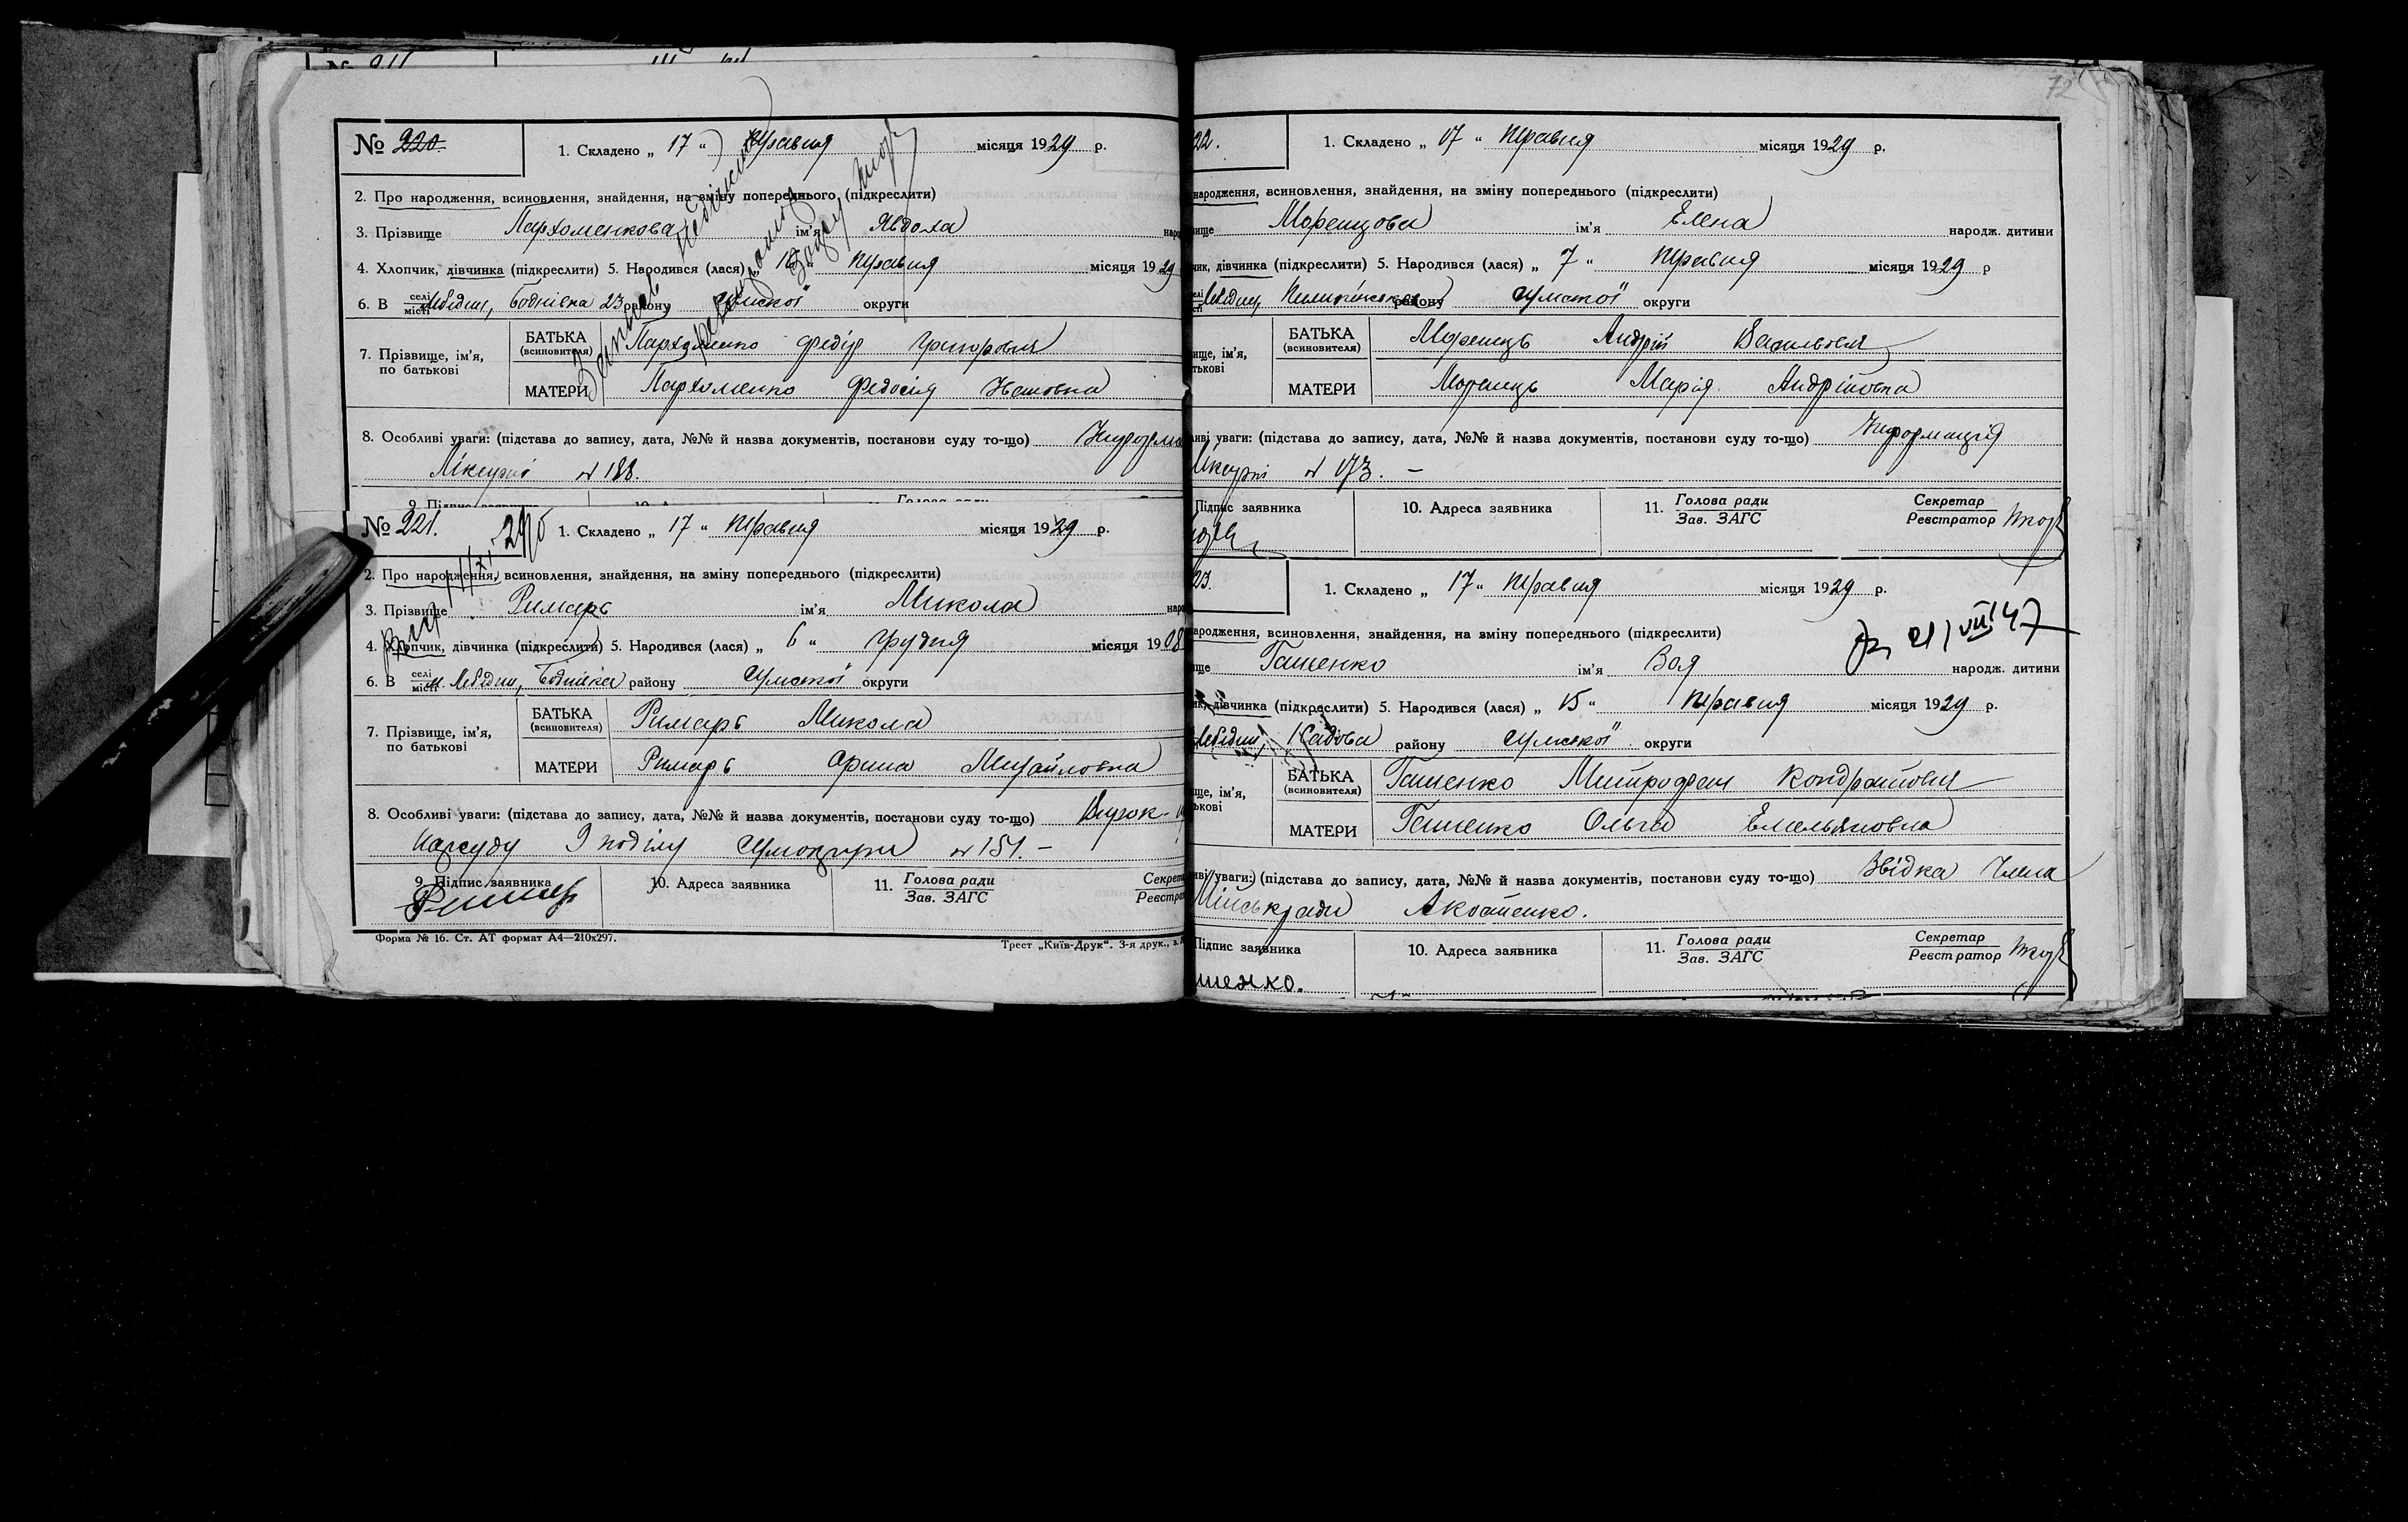 № 220.
1. Складено „ 17 “ травня місяця 1929 р.
2. Про народження, всиновлення, знайдення, на зміну попереднього (підкреслити)
3. Прізвище Пархоменкова ім'я Явдоха
4. Хлопчик, дівчинка (підкреслити) 5. Народився (лася) „ “ травня місяця 1929
6. В селі місті Лебедин, Боднівка 23 району Сумської округи
7. Прізвище, ім'я, по батькові
БАТЬКА (всиновителя) Пархоменко Федір Григорович
МАТЕРИ Пархоменко Федосія Ивановна
8. Особливі уваги: (підстава до запису, дата, №№ й назва документів, постанови суду то-що)
Лікарні № 188.
№ 221.
1. Складено „ 17 “ травня місяця 1929 р.
2. Про народження, всиновлення, знайдення, на зміну попереднього (підкреслити)
3. Прізвище Римарь ім'я Микола
4. Хлопчик, дівчинка (підкреслити) 5. Народився (лася) „ 6 “ грудня місяця 1908
6. В селі місті м. Лебедин, Боднівка району Сумської округи
7. Прізвище, ім'я, по батькові
БАТЬКА (всиновителя) Римарь Микола
МАТЕРИ Римарь Орина Михайловна
8. Особливі уваги: (підстава до запису, дата, №№ й назва документів, постанови суду то-що)
Нарсуду 9 поділу Сумокруги № 151. –
9. Підпис заявника
10. Адреса заявника
11. Голова ради
Зав. ЗАГС
Форма № 16. Ст. АТ формат А4—210х297.
Трест „Київ-Друк“. 3-я друк.,
72
22.
1. Складено „ 17 “ травня місяця 1929 р.
народження, всиновлення, знайдення, на зміну попереднього (підкреслити)
Морецова ім'я Елена народж. дитини
дівчинка (підкреслити) 5. Народився (лася) „ 7 “ травня місяця 1929 р
Лебедин, району Сумської округи
БАТЬКА (всиновителя) Морець Андрій Васильович
МАТЕРИ Морець Марія Андріївна
уваги: (підстава до запису, дата, №№ й назва документів, постанови суду то-що) Информація
Лікарні № 173. –
Підпис заявника
10. Адреса заявника
11. Голова ради
Зав. ЗАГС
Секретар
Реєстратор
23.
1. Складено „ 17 “ травня місяця 1929 р.
народження, всиновлення, знайдення, на зміну попереднього (підкреслити)
21/VII 47
Гашенко ім'я Воя народж. дитини
дівчинка (підкреслити) 5. Народився (лася) „ 15 “ травня місяця 1929 р.
Лебедин, Садова району Сумської округи
БАТЬКА (всиновителя) Гашенко Митрофан Кондратович
МАТЕРИ Гашенко Ольга Емельяновна
уваги: (підстава до запису, дата, №№ й назва документів, постанови суду то-що) Звідка Члена
Міськради
Підпис заявника
10. Адреса заявника
11. Голова ради
Зав. ЗАГС
Секретар
Реєстратор
шенко.